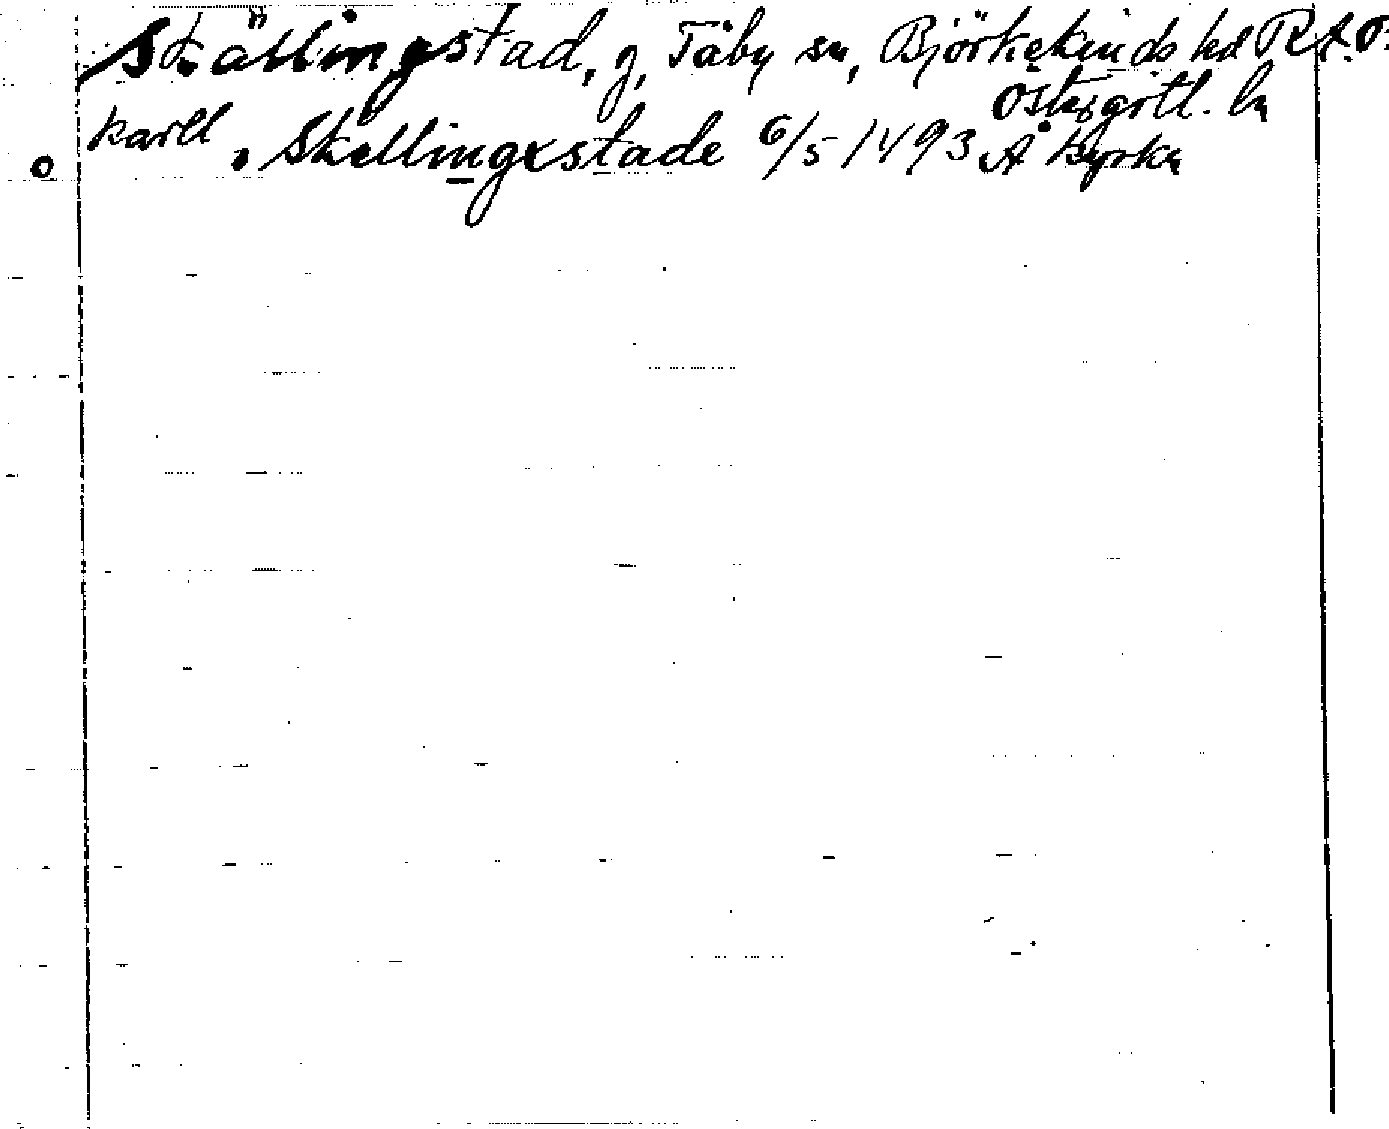 Skällingstad, g, Täby sn, Björkekinds hd RAO.
Östergötl. ln
karll . Skellingxstade 6/5 1493 Å kyrka